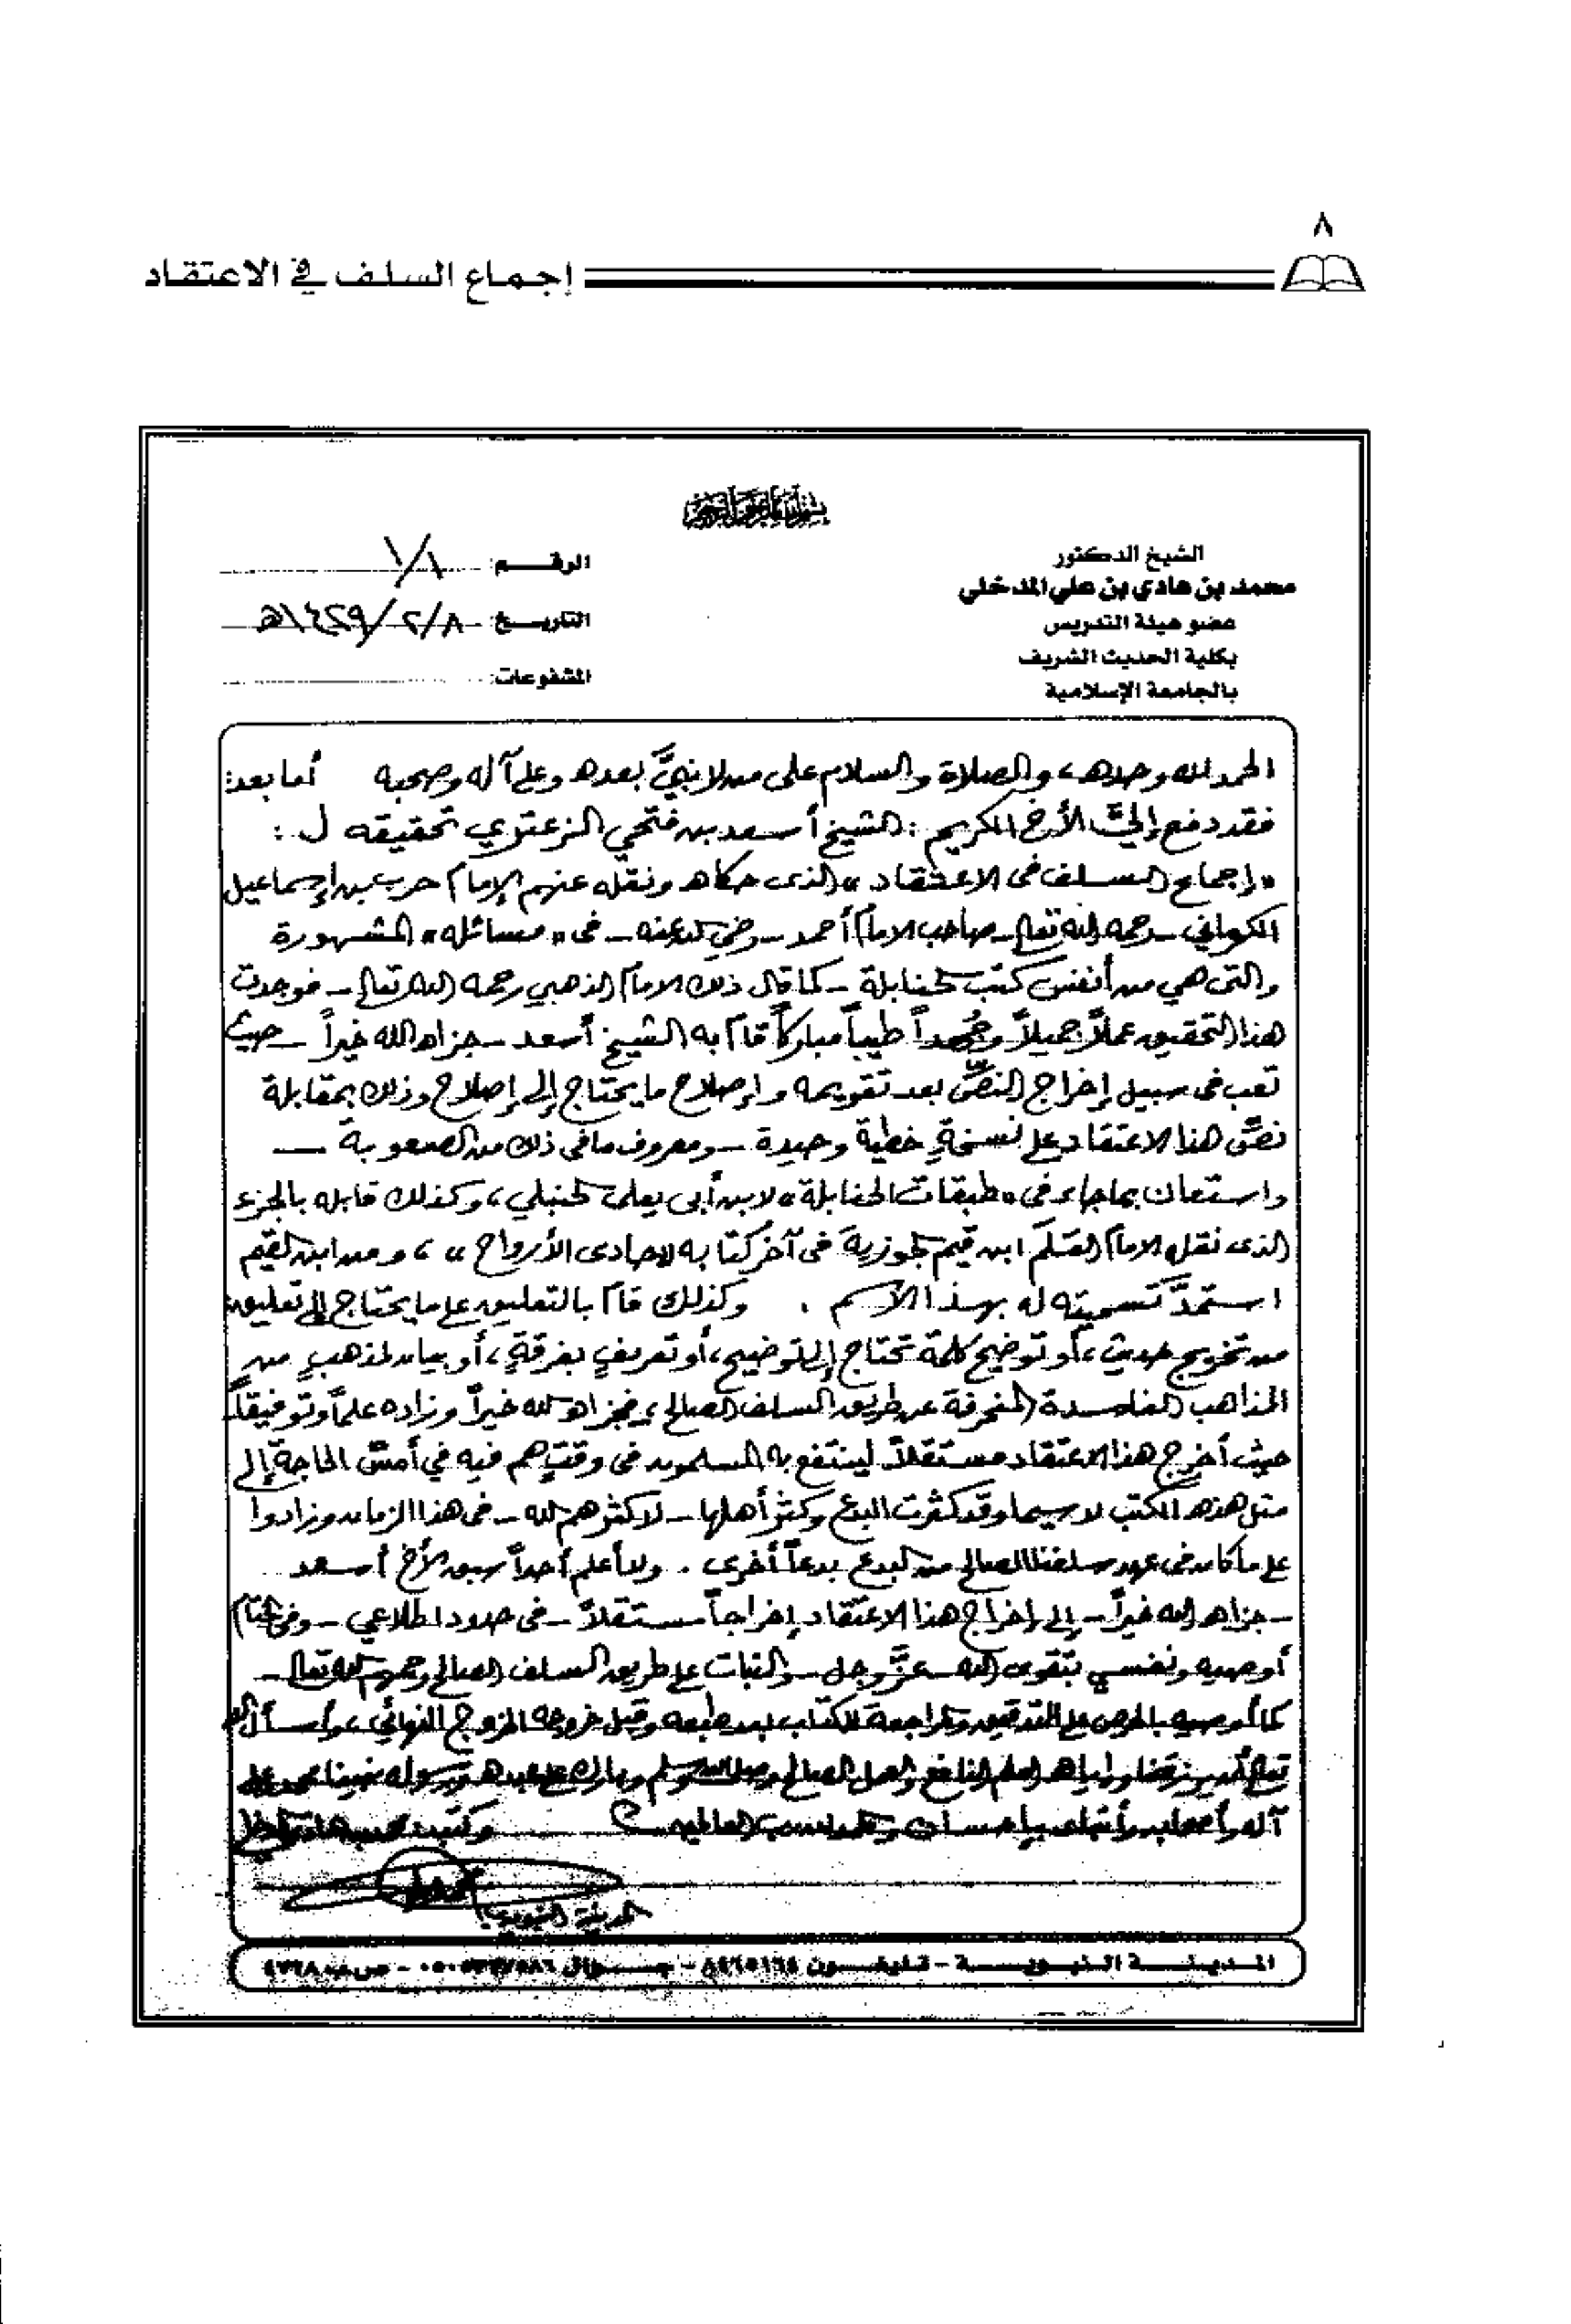 ٨
إجماع السلف في الاعتقاد
بسم الله الرحمن الرحيم
الشيخ الدكتور
محمد بن هادي بن علي المدخلي
عضو هيئة التدريس
بكلية الحديث الشريف
بالجامعة الإسلامية
الرقم: ١/٨
التاريخ: ٨/٢/١٤٢٩هـ
المشفوعات:
الحمد لله وحده، والصلاة والسلام على من لا نبيَّ بعده وعلى آله وصحبه أما بعد:
فقد دفع إليَّ الأخ الكريم: الشيخ أسعد بن فتحي الزعتري تحقيقه ل:
«إجماع السلف في الاعتقاد» الذي حكاه ونقله عنهم الإمام حرب بن إسماعيل
الكرماني - رحمه الله تعالى - صاحب الإمام أحمد - رضي الله عنه - في «مسائله» المشهورة
والتي هي من أنفس كتب الحنابلة - كما قال ذلك الإمام الذهبي رحمه الله تعالى - فوجدت
هذا التحقيق عملاً جميلاً وجُهداً طيباً مباركاً قام به الشيخ أسعد - جزاه الله خيراً - حيث
تعب في سبيل إخراج النصِّ بعد تقويمه وإصلاح ما يحتاج إلى إصلاح وذلك بمقابلة
نصِّ هذا الاعتقاد على نسخةٍ خطية وحيدة - ومعروف ما في ذلك من الصعوبة -
واستعان بما جاء في «طبقات الحنابلة» لابن أبي يعلى الحنبلي، وكذلك قابله بالجزء
الذي نقله الإمام العَلَم ابن قيم الجوزية في آخر كتابه «حادي الأرواح»، ومن ابن القيم
استمدَّ تسميته له بهذا الاسم. وكذلك قام بالتعليق على ما يحتاج إلى تعليق
من تخريج حديث، أو توضيح كلمة تحتاج إلى توضيح، أو تعريفٍ بفرقةٍ، أو بيان لمذهبٍ من
المذاهب الفاسدة المنحرفة عن طريق السلف الصالح، فجزاه الله خيراً وزاده علماً وتوفيقاً
حيث أخرج هذا الاعتقاد مستقلاً لينتفع به المسلمون في وقتٍ هم فيه في أمسّ الحاجة إلى
مثل هذه الكتب لا سيما وقد كثرت البدع وكثر أهلها - لا كثرهم الله - في هذا الزمان وزادوا
على ما كان في عهد سلفنا الصالح من البدع بدعاً أخرى. ولا أعلم أحداً سبق الأخ أسعد
- جزاه الله خيراً - إلى إخراج هذا الاعتقاد إخراجاً مستقلاً - في حدود اطلاعي - وفي الختام
أوصيه ونفسي بتقوى الله - عزَّ وجل - والثبات على طريق السلف الصالح رحمهم الله تعالى -
كما أوصيه بالحرص على التدقيق والمراجعة للكتاب بعد طبعه وقبل خروجه الخروج النهائي، وأسأل الله
تعالى أن يرزقنا وإياه العلم النافع والعمل الصالح وصلى الله وسلم وبارك على عبده ورسوله نبينا محمد وعلى
آله وأصحابه وأتباعه بإحسان والحمد لله رب العالمين وكتبه محمد بن هادي المدخلي
المدينة النبوية
المدينة النبوية - تليفون - جوال - ص.ب